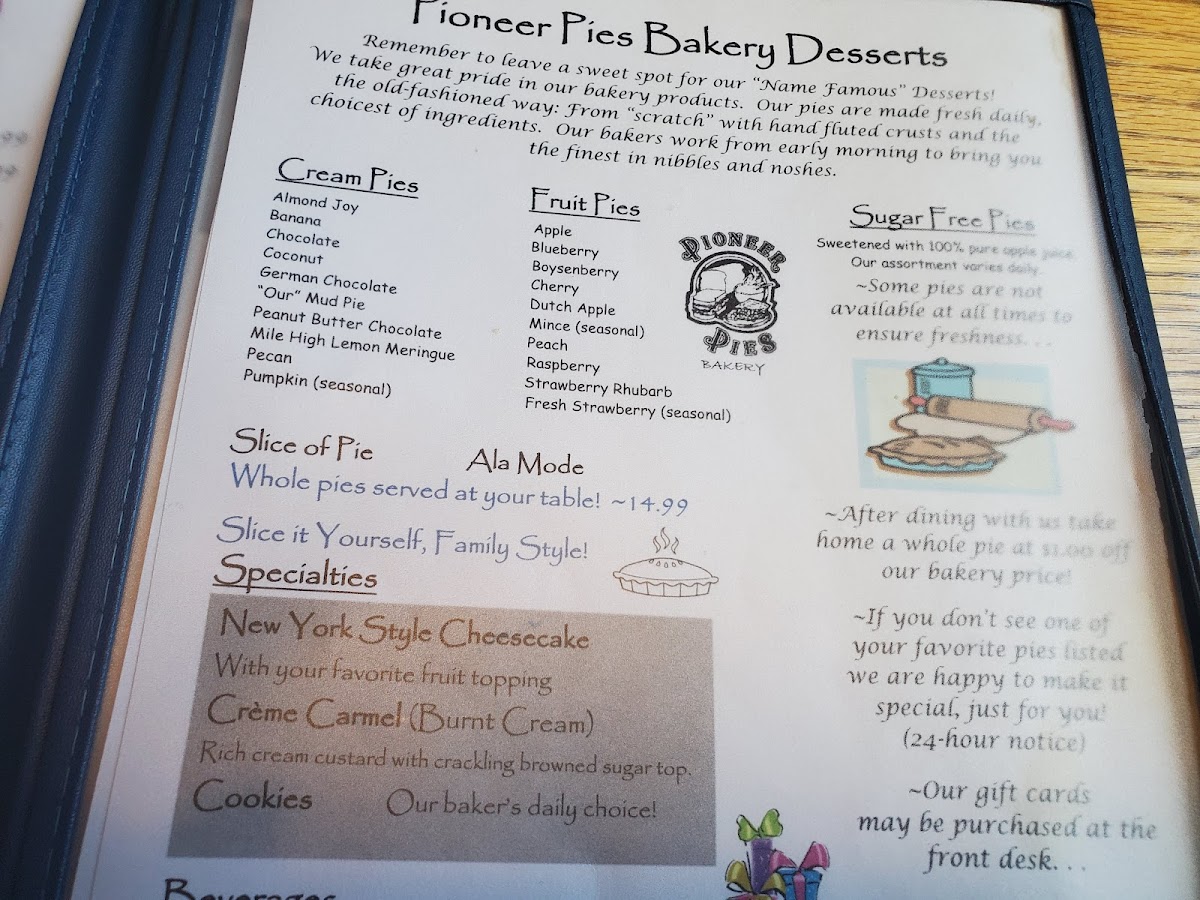 Pioneer Pies Bakery Desserts
Remember to leave a sweet spot for our "Name Famous" Desserts!
We take great pride in our bakery products. Our pies are made fresh daily,
the old-fashioned way: From "scratch" with hand fluted crusts and the
choicest of ingredients. Our bakers work from early morning to bring you
the finest in nibbles and noshes.
Cream Pies
Almond Joy
Banana
Chocolate
Coconut
German Chocolate
"Our" Mud Pie
Peanut Butter Chocolate
Mile High Lemon Meringue
Pecan
Pumpkin (seasonal)
Fruit Pies
Apple
Blueberry
Boysenberry
Cherry
Dutch Apple
Mince (seasonal)
Peach
Raspberry
Strawberry Rhubarb
Fresh Strawberry (seasonal)
PIONEER
PIES
BAKERY
Sugar Free Pies
Sweetened with 100% pure apple juice
Our assortment varies daily.
~Some pies are not
available at all times to
ensure freshness. . .
Slice of Pie
Ala Mode
Whole pies served at your table! ~14.99
Slice it Yourself, Family Style!
Specialties
New York Style Cheesecake
With your favorite fruit topping
Crème Carmel (Burnt Cream)
Rich cream custard with crackling browned sugar top.
Cookies Our baker's daily choice!
~After dining with us take
home a whole pie at $1.00 off
our bakery price!
~If you don't see one of
your favorite pies listed
we are happy to make it
special, just for you!
(24-hour notice)
~Our gift cards
may be purchased at the
front desk. . .
Beverages